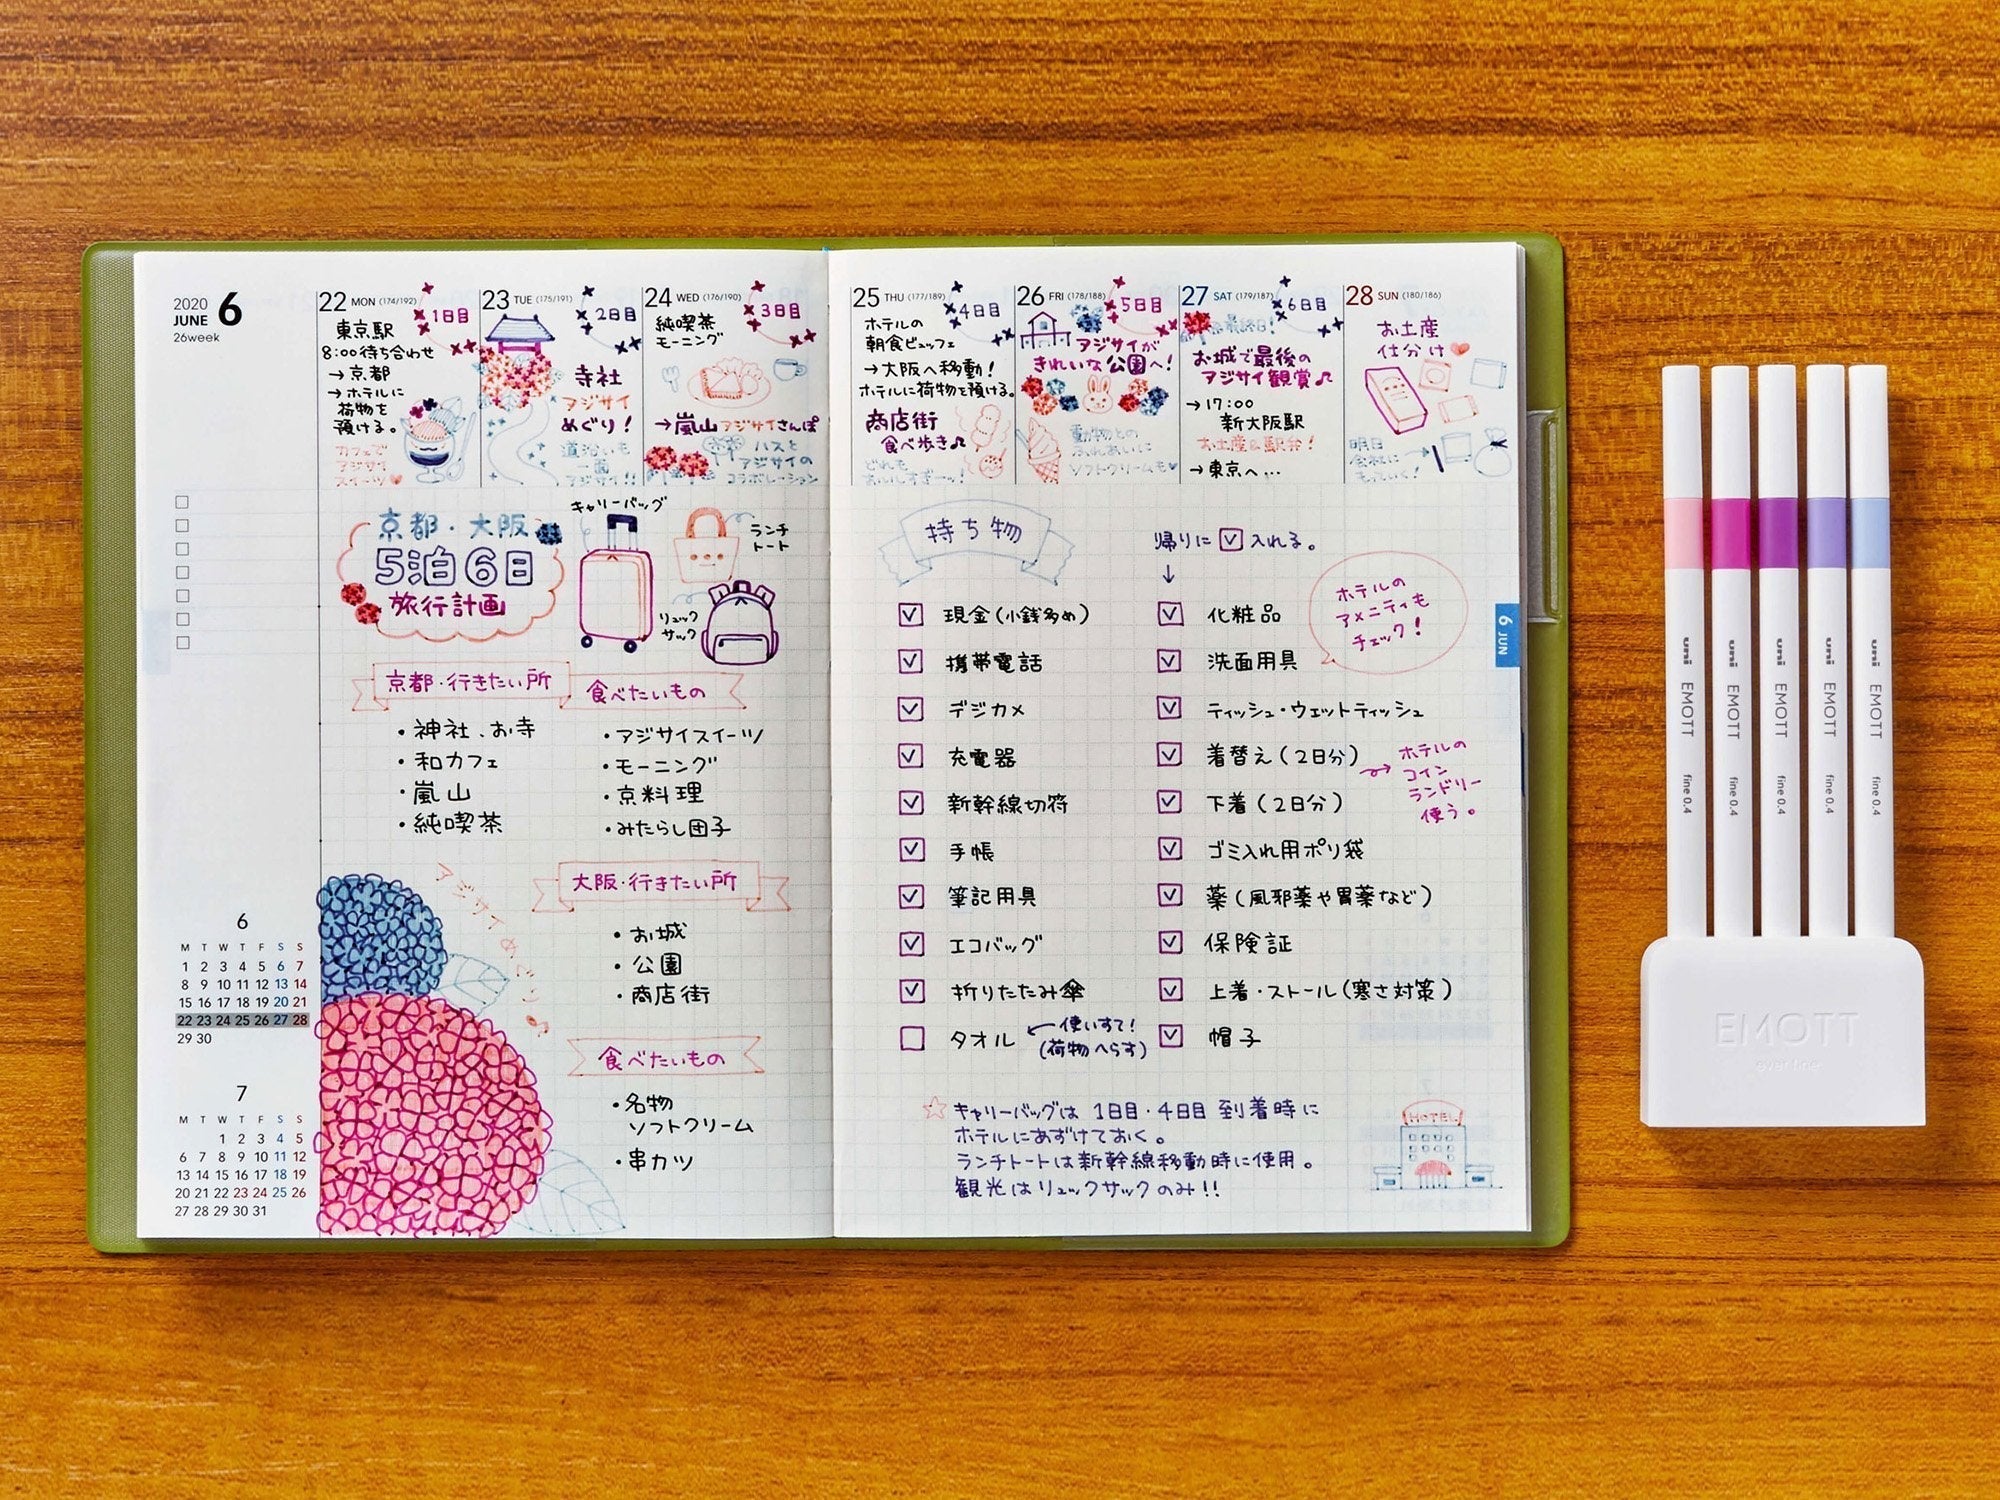 2020
JUNE 6
26week
22 MON (174/192)
1日目
東京駅
8:00待ち合わせ
→京都
→ホテルに
荷物を
預ける。
カフェで
アジサイ
スイーツ
23 TUE (175/191)
2日目
寺社
アジサイ
めぐり!
道沿いも
一面
アジサイ!!
24 WED (176/190)
3日目
純喫茶
モーニング
→嵐山アジサイさんぽ
ハスと
アジサイの
コラボレーション
25 THU (177/189)
4日目
ホテルの
朝食ビュッフェ
→大阪へ移動!
ホテルに荷物を預ける。
商店街
食べ歩き♪
どれも
おいしすぎーッ!
26 FRI (178/188)
5日目
アジサイが
きれいな公園へ!
動物との
ふれあいに
ソフトクリームも♥
27 SAT (179/187)
6日目
最終日!
お城で最後の
アジサイ観賞♪
→17:00
新大阪駅
お土産&駅弁!
→東京へ…
28 SUN (180/186)
お土産
仕分け
明日
会社に
もっていく!
京都・大阪
5泊6日
旅行計画
キャリーバッグ
ランチ
トート
リュック
サック
京都・行きたい所
・神社、お寺
・和カフェ
・嵐山
・純喫茶
食べたいもの
・アジサイスイーツ
・モーニング
・京料理
・みたらし団子
アジサイめぐり♪
大阪・行きたい所
・お城
・公園
・商店街
食べたいもの
・名物
ソフトクリーム
・串カツ
6
M T W T F S S
1 2 3 4 5 6 7
8 9 10 11 12 13 14
15 16 17 18 19 20 21
22 23 24 25 26 27 28
29 30
7
M T W T F S S
1 2 3 4 5
6 7 8 9 10 11 12
13 14 15 16 17 18 19
20 21 22 23 24 25 26
27 28 29 30 31
持ち物
帰りに☑入れる。
↓
☑ 現金(小銭多め)
☑ 携帯電話
☑ デジカメ
☑ 充電器
☑ 新幹線切符
☑ 手帳
☑ 筆記用具
☑ エコバッグ
☑ 折りたたみ傘
☐ タオル ←使いすて!
(荷物へらす)
☑ 化粧品
☑ 洗面用具
☑ ティッシュ・ウェットティッシュ
☑ 着替え(2日分)
☑ 下着(2日分)
☑ ゴミ入れ用ポリ袋
☑ 薬(風邪薬や胃薬など)
☑ 保険証
☑ 上着・ストール(寒さ対策)
☑ 帽子
ホテルの
アメニティも
チェック!
ホテルの
コイン
ランドリー
使う。
☆キャリーバッグは 1日目・4日目 到着時に
ホテルにあずけておく。
ランチトートは新幹線移動時に使用。
観光はリュックサックのみ!!
HOTEL
6 JUN
uni EMOTT fine 0.4
uni EMOTT fine 0.4
uni EMOTT fine 0.4
uni EMOTT fine 0.4
uni EMOTT fine 0.4
EMOTT
ever fine